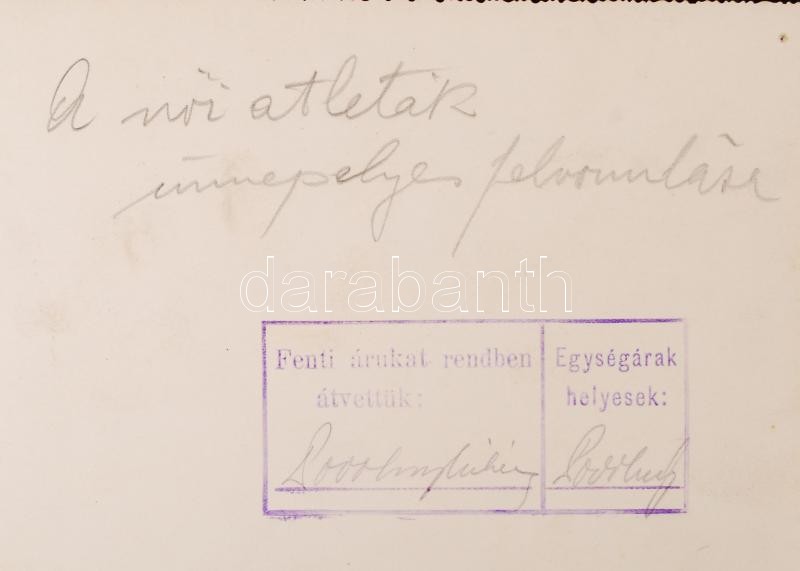 A női atleták
ünnepelyes felvonulása
darabanth
Fenti árukat rendben
átvettük:
Egységárak
helyesek: